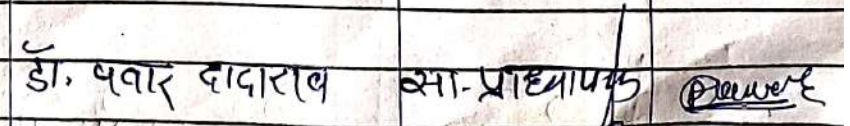 डॉ. पवार दादाराव सा-प्राध्यापक